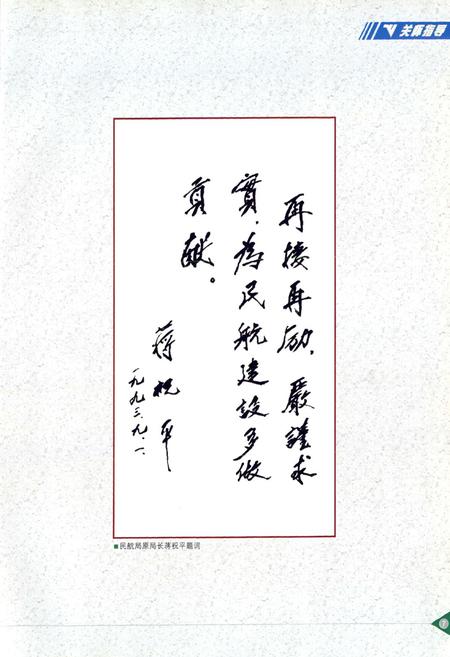 关怀指导
再接再励，嚴謹求
實，為民航建設多做
貢献。
蒋祝平
一九九三.九.一.
■民航局原局长蒋祝平题词
7